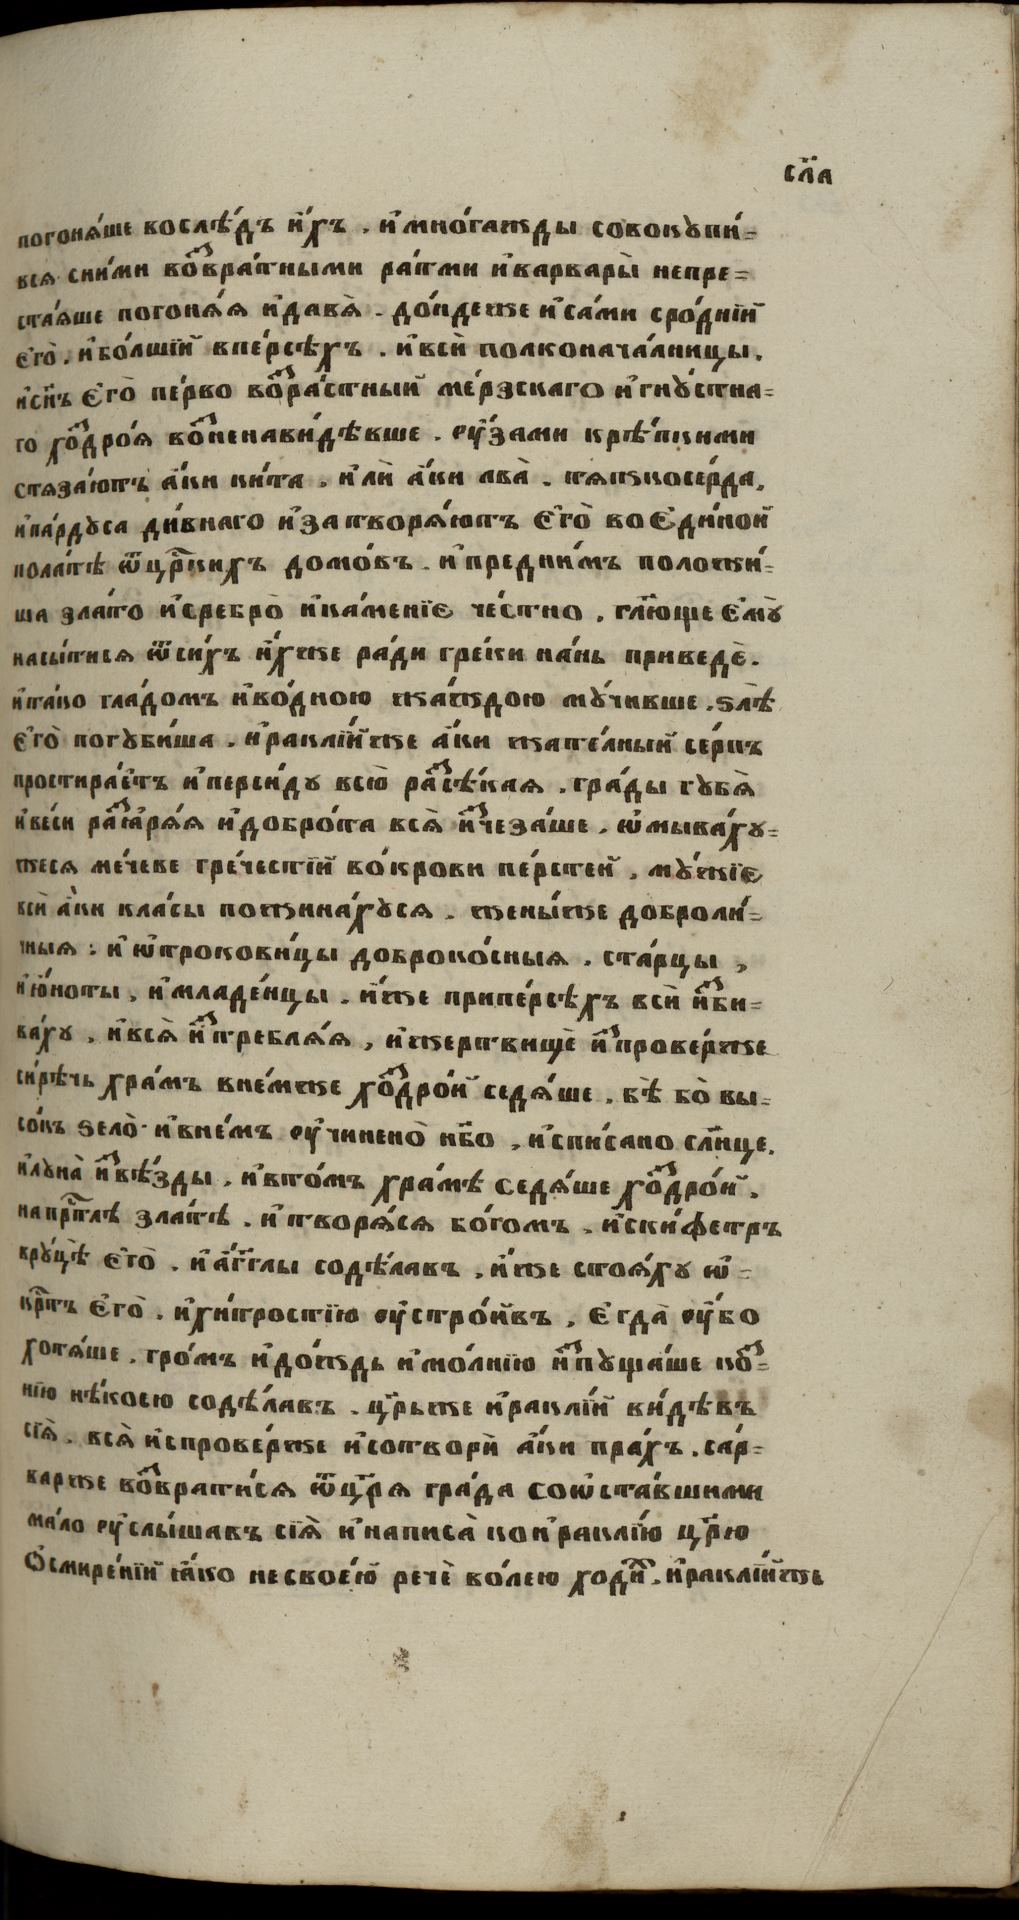 сл҃а
погонѧ́ше вослѣ́дъ и҆́хъ . и҆мно́гажды совокꙋпи́-
всѧ сни́ми воз̾вра́тными ра́тми и҆варвары̀ непре-
ста́ѧше погонѧ́ѧ и҆давѧ̀ . до́ндеже и҆са́ми сро́дніи
є҆го̀ . и҆бо́лшіи впе́рсѣхъ . и҆всѝ полконача́лницы .
и҆сн҃ъ є҆го̀ пе́рво воз̾ра́стный ме́рзскаго и҆гнꙋ́стна-
го хоз̾дро́ѧ воз̾ненави́дѣвше . оу҆́зами крѣ́пкими
стѧза́ютъ а҆́ки ки́та . и҆лѝ а҆́ки лва̀ . тѧжкосе́рда .
и҆па́рдꙋса ди́внаго и҆затворѧ́ютъ є҆го̀ воє҆ди́ной
пола́тѣ ѿцр҃кихъ домо́въ . и҆предни́мъ положи́-
ша зла́то и҆сребро̀ и҆ка́меніє че́стно . гл҃юще є҆мꙋ̀
насы́тисѧ ѿси́хъ и҆́хже ра́ди гре́ки на́нь приведѐ .
и҆та́ко гла́домъ и҆во́дною жа́ждою мꙋ́чивше . ѕлѣ̀
є҆го̀ погꙋби́ша . и҆ракли́йже а҆́ки жате́лный се́рпъ
простира́етъ и҆перси́дꙋ всю̀ раз̾сѣ́каѧ . гра́ды гꙋбѧ̀
и҆ве́си раз̾арѧ́ѧ и҆добро́та всѧ̀ и҆з̾чеза́ше . ѡ҆мыва́хꙋ-
жесѧ ме́чеве гре́честіи во́крови пе́рстей . мꙋ́жіє
всѝ а҆́ки кла́сы пожина́хꙋсѧ . жены́же доброли́-
чныѧ . и҆ѡ҆трокови́цы доброко́сныѧ . ста́рцы ,
и҆ю҆́ноты . и҆младе́нцы . и҆́же припе́рсѣхъ всѝ и҆з̾би-
ва́хꙋ . и҆всѧ̀ и҆з̾треблѧ́ѧ , и҆жертвищѐ и҆з̾прове́рже
си́рѣчь хра́мъ вне́мже хоз̾дро́й седѧ́ше . бѣ̀ бо̀ вы-
со́къ ѕело̀ и҆вне́мъ оу҆чинено̀ нб҃о , и҆спи́сано сл҃нце .
и҆лꙋна̀ и҆з̾вѣ́зды . и҆вто́мъ хра́мѣ седѧ́ше хоз̾дро́й .
напрⷭ҇тлѣ зла́тѣ . и҆творѧ́сѧ бо́гомъ . и҆ски́фетръ
врꙋ́цѣ є҆го̀ . и҆а҆́гг҃лы содѣ́лавъ . и҆́же стоѧ́хꙋ ѡ҆-
крⷭ҇тъ є҆го̀ . и҆хи́тростію оу҆стро́ивъ . є҆гда̀ оу҆́бо
хотѧ́ше . гро́мъ и҆до́ждь и҆мо́лнію и҆з̾пꙋща́ше коз̾-
нію нѣ́коею содѣ́лавъ . цр҃ьже и҆ракли́й ви́дѣвъ
сіѧ̀ . всѧ̀ и҆спрове́рже и҆сотворѝ а҆́ки пра́хъ . са́р-
варже воз̾врати́сѧ ѿцр҃ѧ гра́да соѡ҆ста́вшими
ма́ло оу҆слы́шавъ сіѧ̀ и҆написа̀ кои҆ракли́ю цр҃ю
Ѻ҆смире́ніи ꙗ҆́ко несвое́ю речѐ во́лею ходи́х̾ . и҆ракли́йже